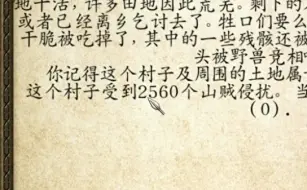 地干活，许多田地因此荒无。剩下的
或者已经离乡乞讨去了。牲口们要么
干脆被吃掉了，其中的一些残骸还被
头被野兽竞相
你记得这个村子及周围的土地属
这个村子受到2560个山贼侵扰。当
(0).